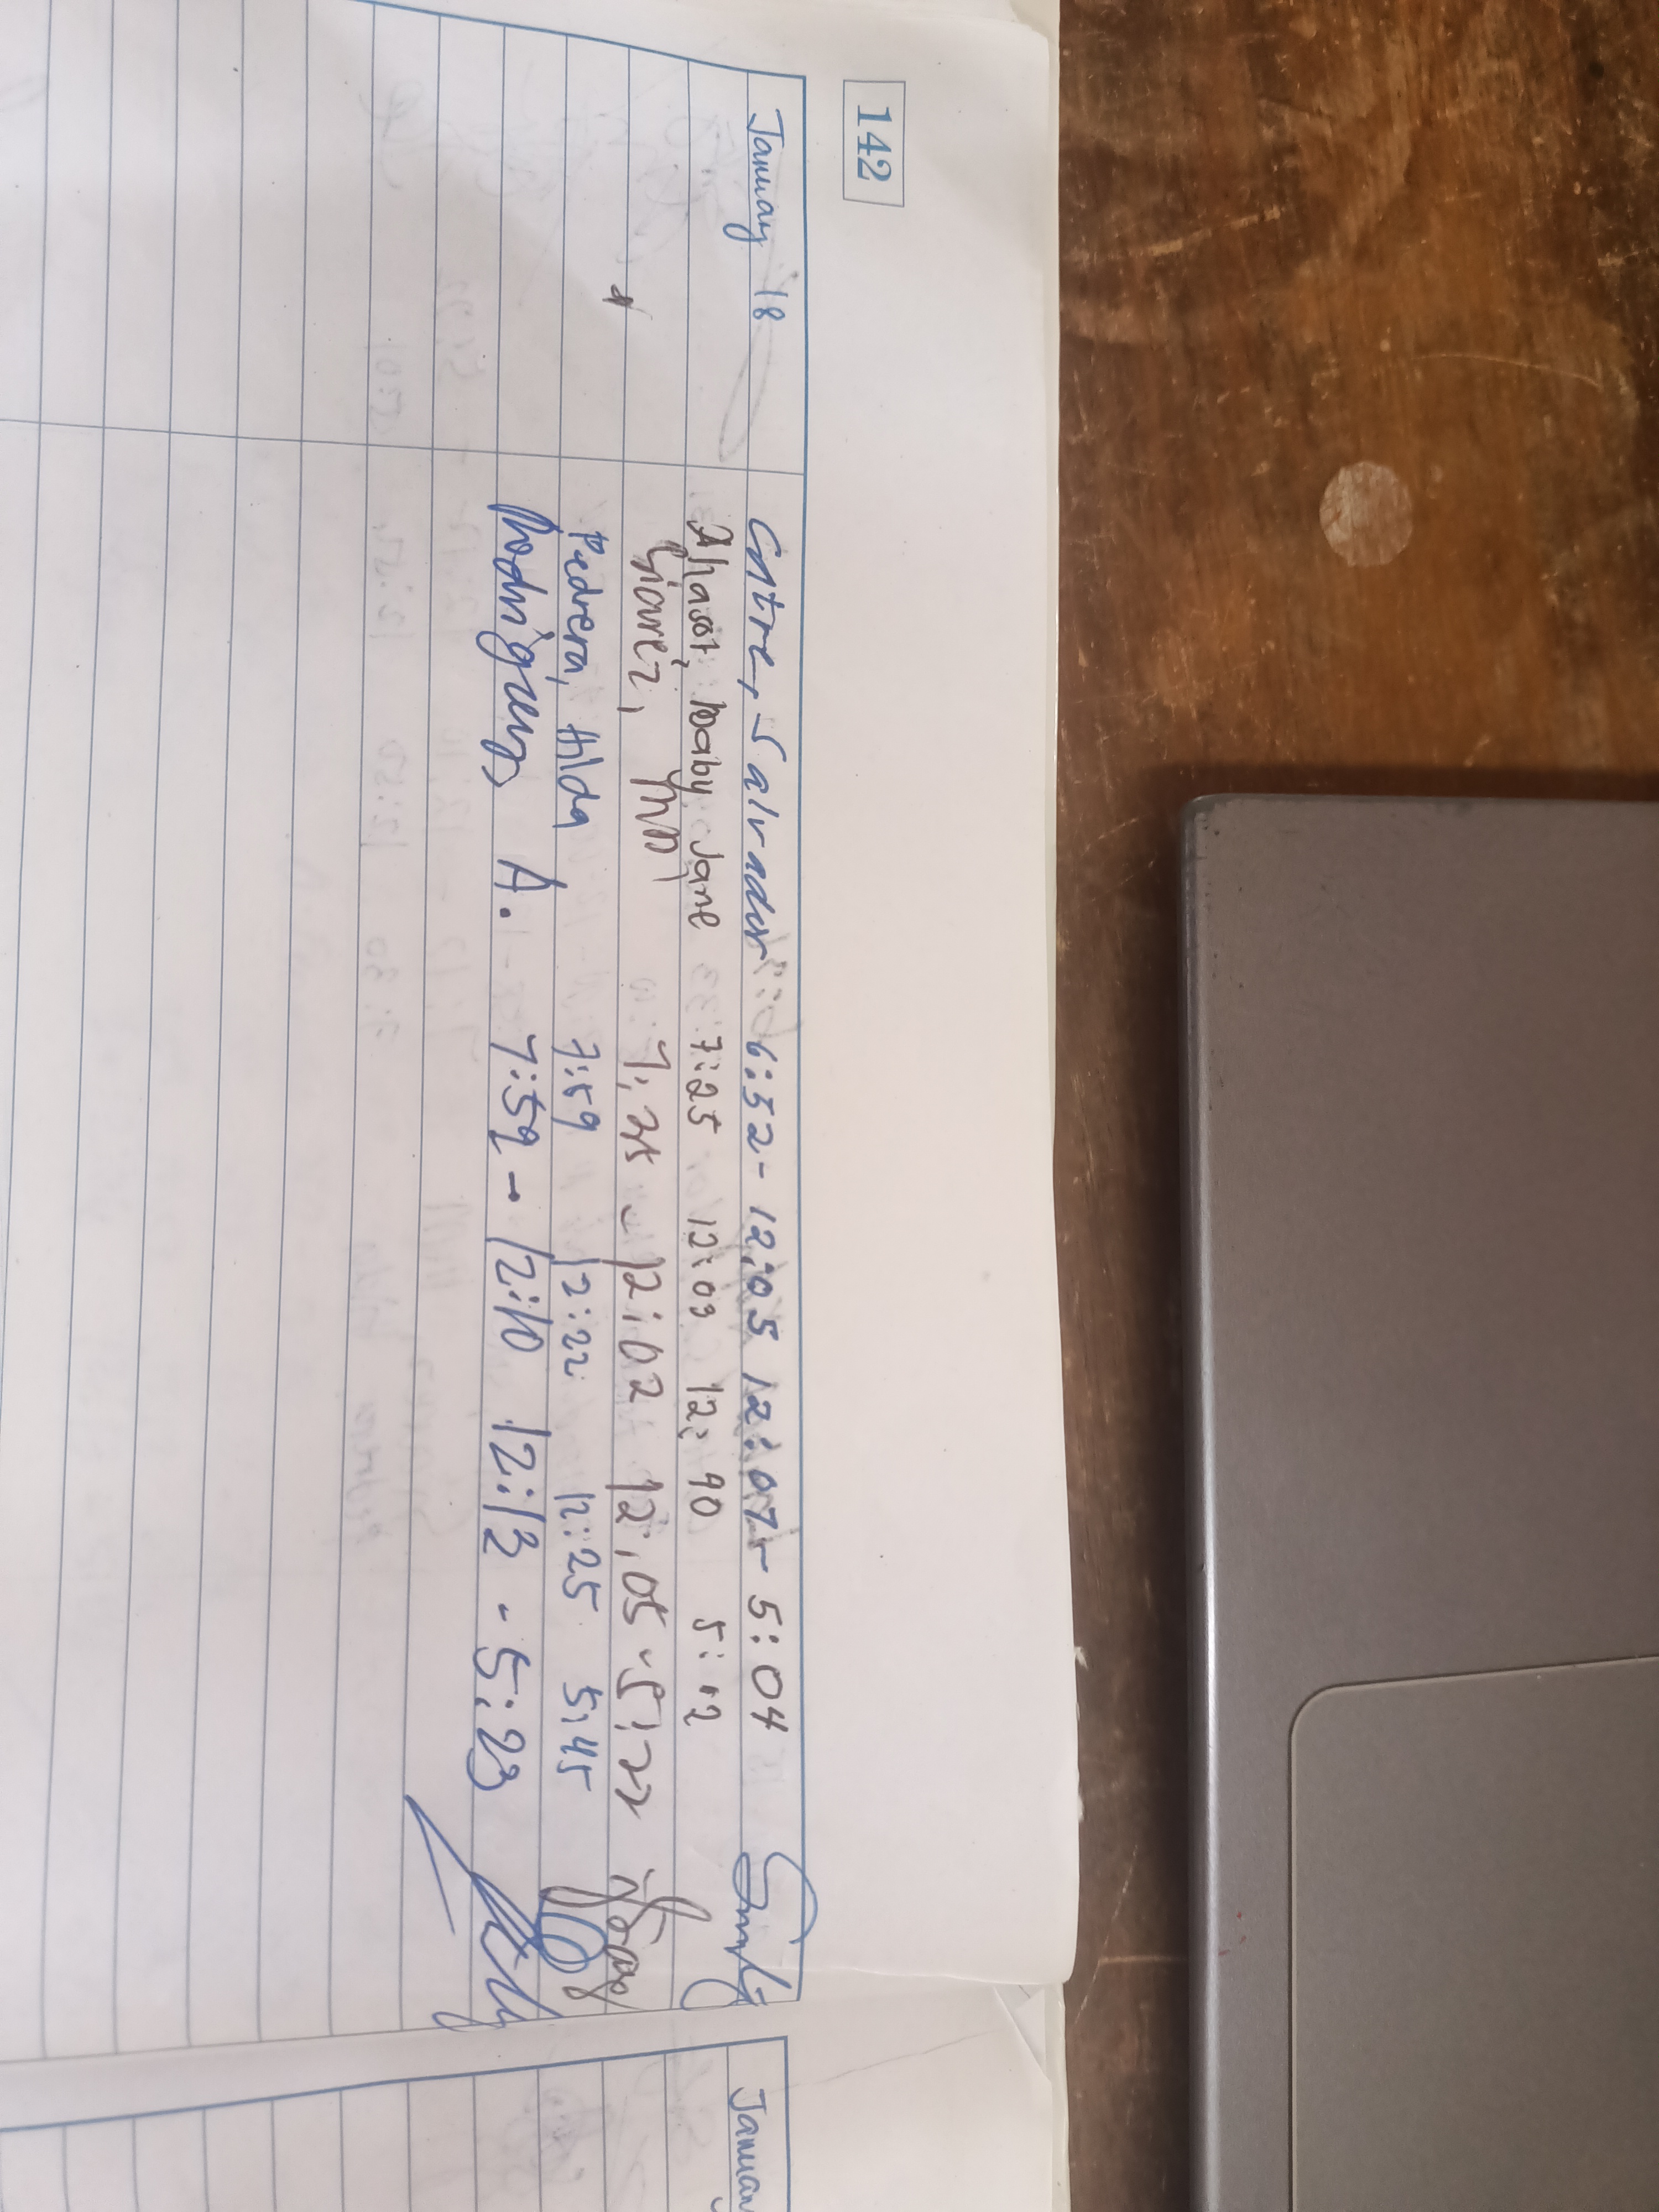 142
January 18
Entre, Salvador 6:52 - 12:05 12:07 - 5:04
Baby Jane 7:25 12:03 12:40 5:12
12:02 12:05 - 5:22
Pedrera, Hilda 7:59 12:22 12:25 5:45
Rodriguez, A. 7:59 - 12:10 12:13 - 5:23
January